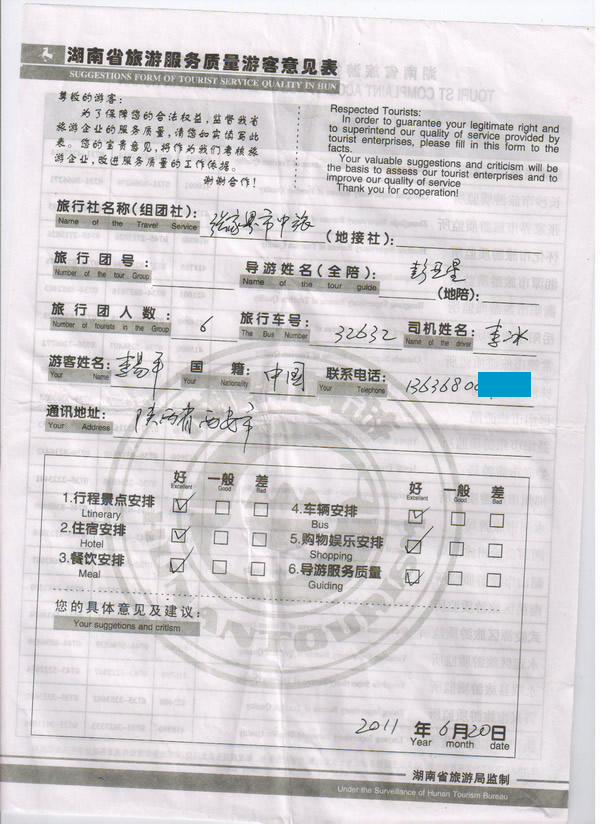 湖南省旅游服务质量游客意见表
SUGGESTIONS FORM OF TOURIST SERVICE QUALITY IN HUN
尊敬的游客：
为了保障您的合法权益，监督我省
旅游企业的服务质量，请您如实填写此
表。您的宝贵意见，将作为我们考核旅
游企业，改进服务质量的工作依据。
谢谢合作！
Respected Tourists:
In order to guarantee your legitimate right and
to superintend our quality of service provided by
tourist enterprises, please fill in this form to the
facts.
Your valuable suggestions and criticism will be
the basis to assess our tourist enterprises and to
improve our quality of service
Thank you for cooperation!
旅行社名称(组团社)： 张家界市中旅 (地接社)：
Name of the Travel Service
旅行团号： 导游姓名(全陪)： 彭卫星
Number of the tour Group Name of the tour guide (地陪)：
旅行团人数： 6 旅行车号： 32632 司机姓名： 李冰
Number of tourists in the Group The Bus Number Name of the driver
游客姓名： 李易平 国籍： 中国 联系电话： 13636800
Your Name Your Nationality Your Telephone
通讯地址： 陕西省西安市
Your Address
好 一般 差 好 一般 差
Excellent Good Bad Excellent Good Bad
1.行程景点安排 4.车辆安排
Ltinerary Bus
2.住宿安排 5.购物娱乐安排
Hotel Shopping
3.餐饮安排 6.导游服务质量
Meal Guiding
您的具体意见及建议：
Your suggetions and critism
2011 年 6 月 20 日
Year month date
湖南省旅游局监制
Under the Surveillance of Hunan Tourism Bureau